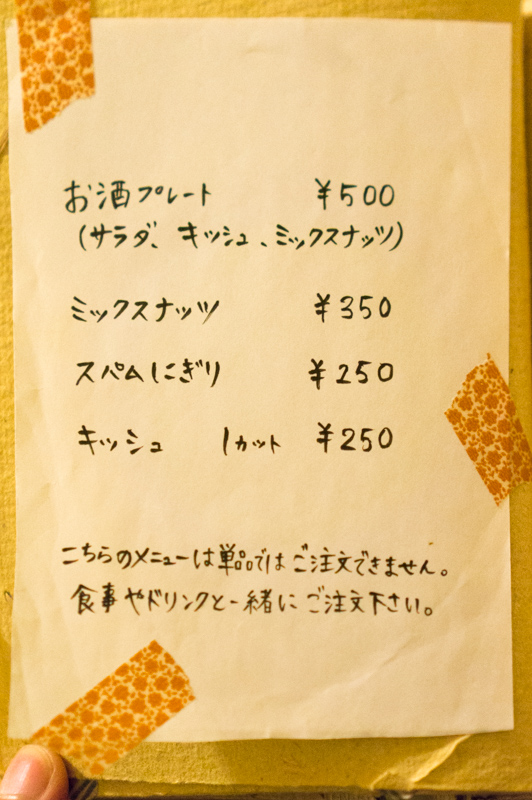 お酒プレート ¥500
(サラダ、キッシュ、ミックスナッツ)
ミックスナッツ ¥350
スパムにぎり ¥250
キッシュ 1カット ¥250
こちらのメニューは単品ではご注文できません。
食事やドリンクと一緒にご注文下さい。